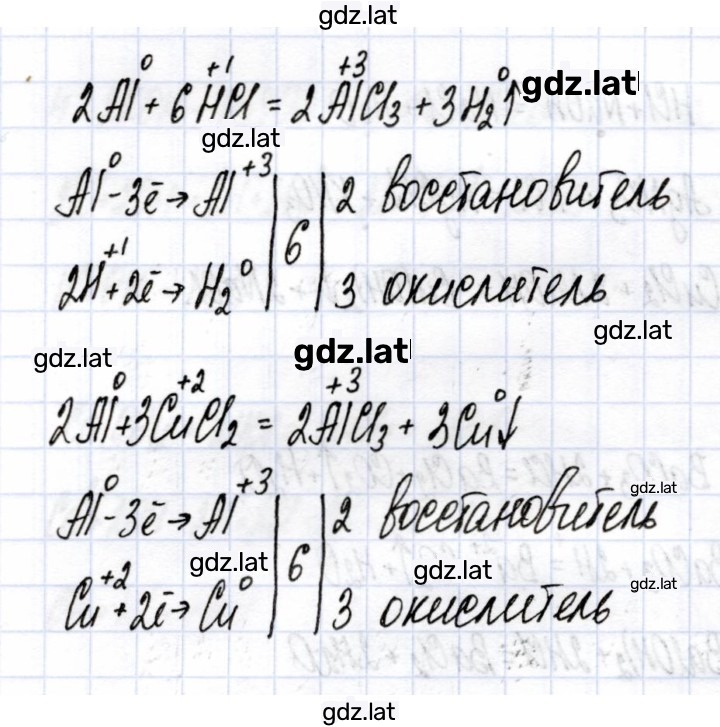 gdz.lat
2Al⁰ + 6H⁺¹Cl = 2Al⁺³Cl₃ + 3H₂⁰↑ gdz.lat
gdz.lat
Al⁰ - 3ē → Al⁺³ | | 2 восстановитель
6
2H⁺¹ + 2ē → H₂⁰ | | 3 окислитель
gdz.lat
gdz.lat gdz.lat
2Al⁰ + 3Cu⁺²Cl₂ = 2Al⁺³Cl₃ + 3Cu⁰↓
gdz.lat
Al⁰ - 3ē → Al⁺³ | | 2 восстановитель
gdz.lat 6 gdz.lat gdz.lat
Cu⁺² + 2ē → Cu⁰ | | 3 окислитель
gdz.lat